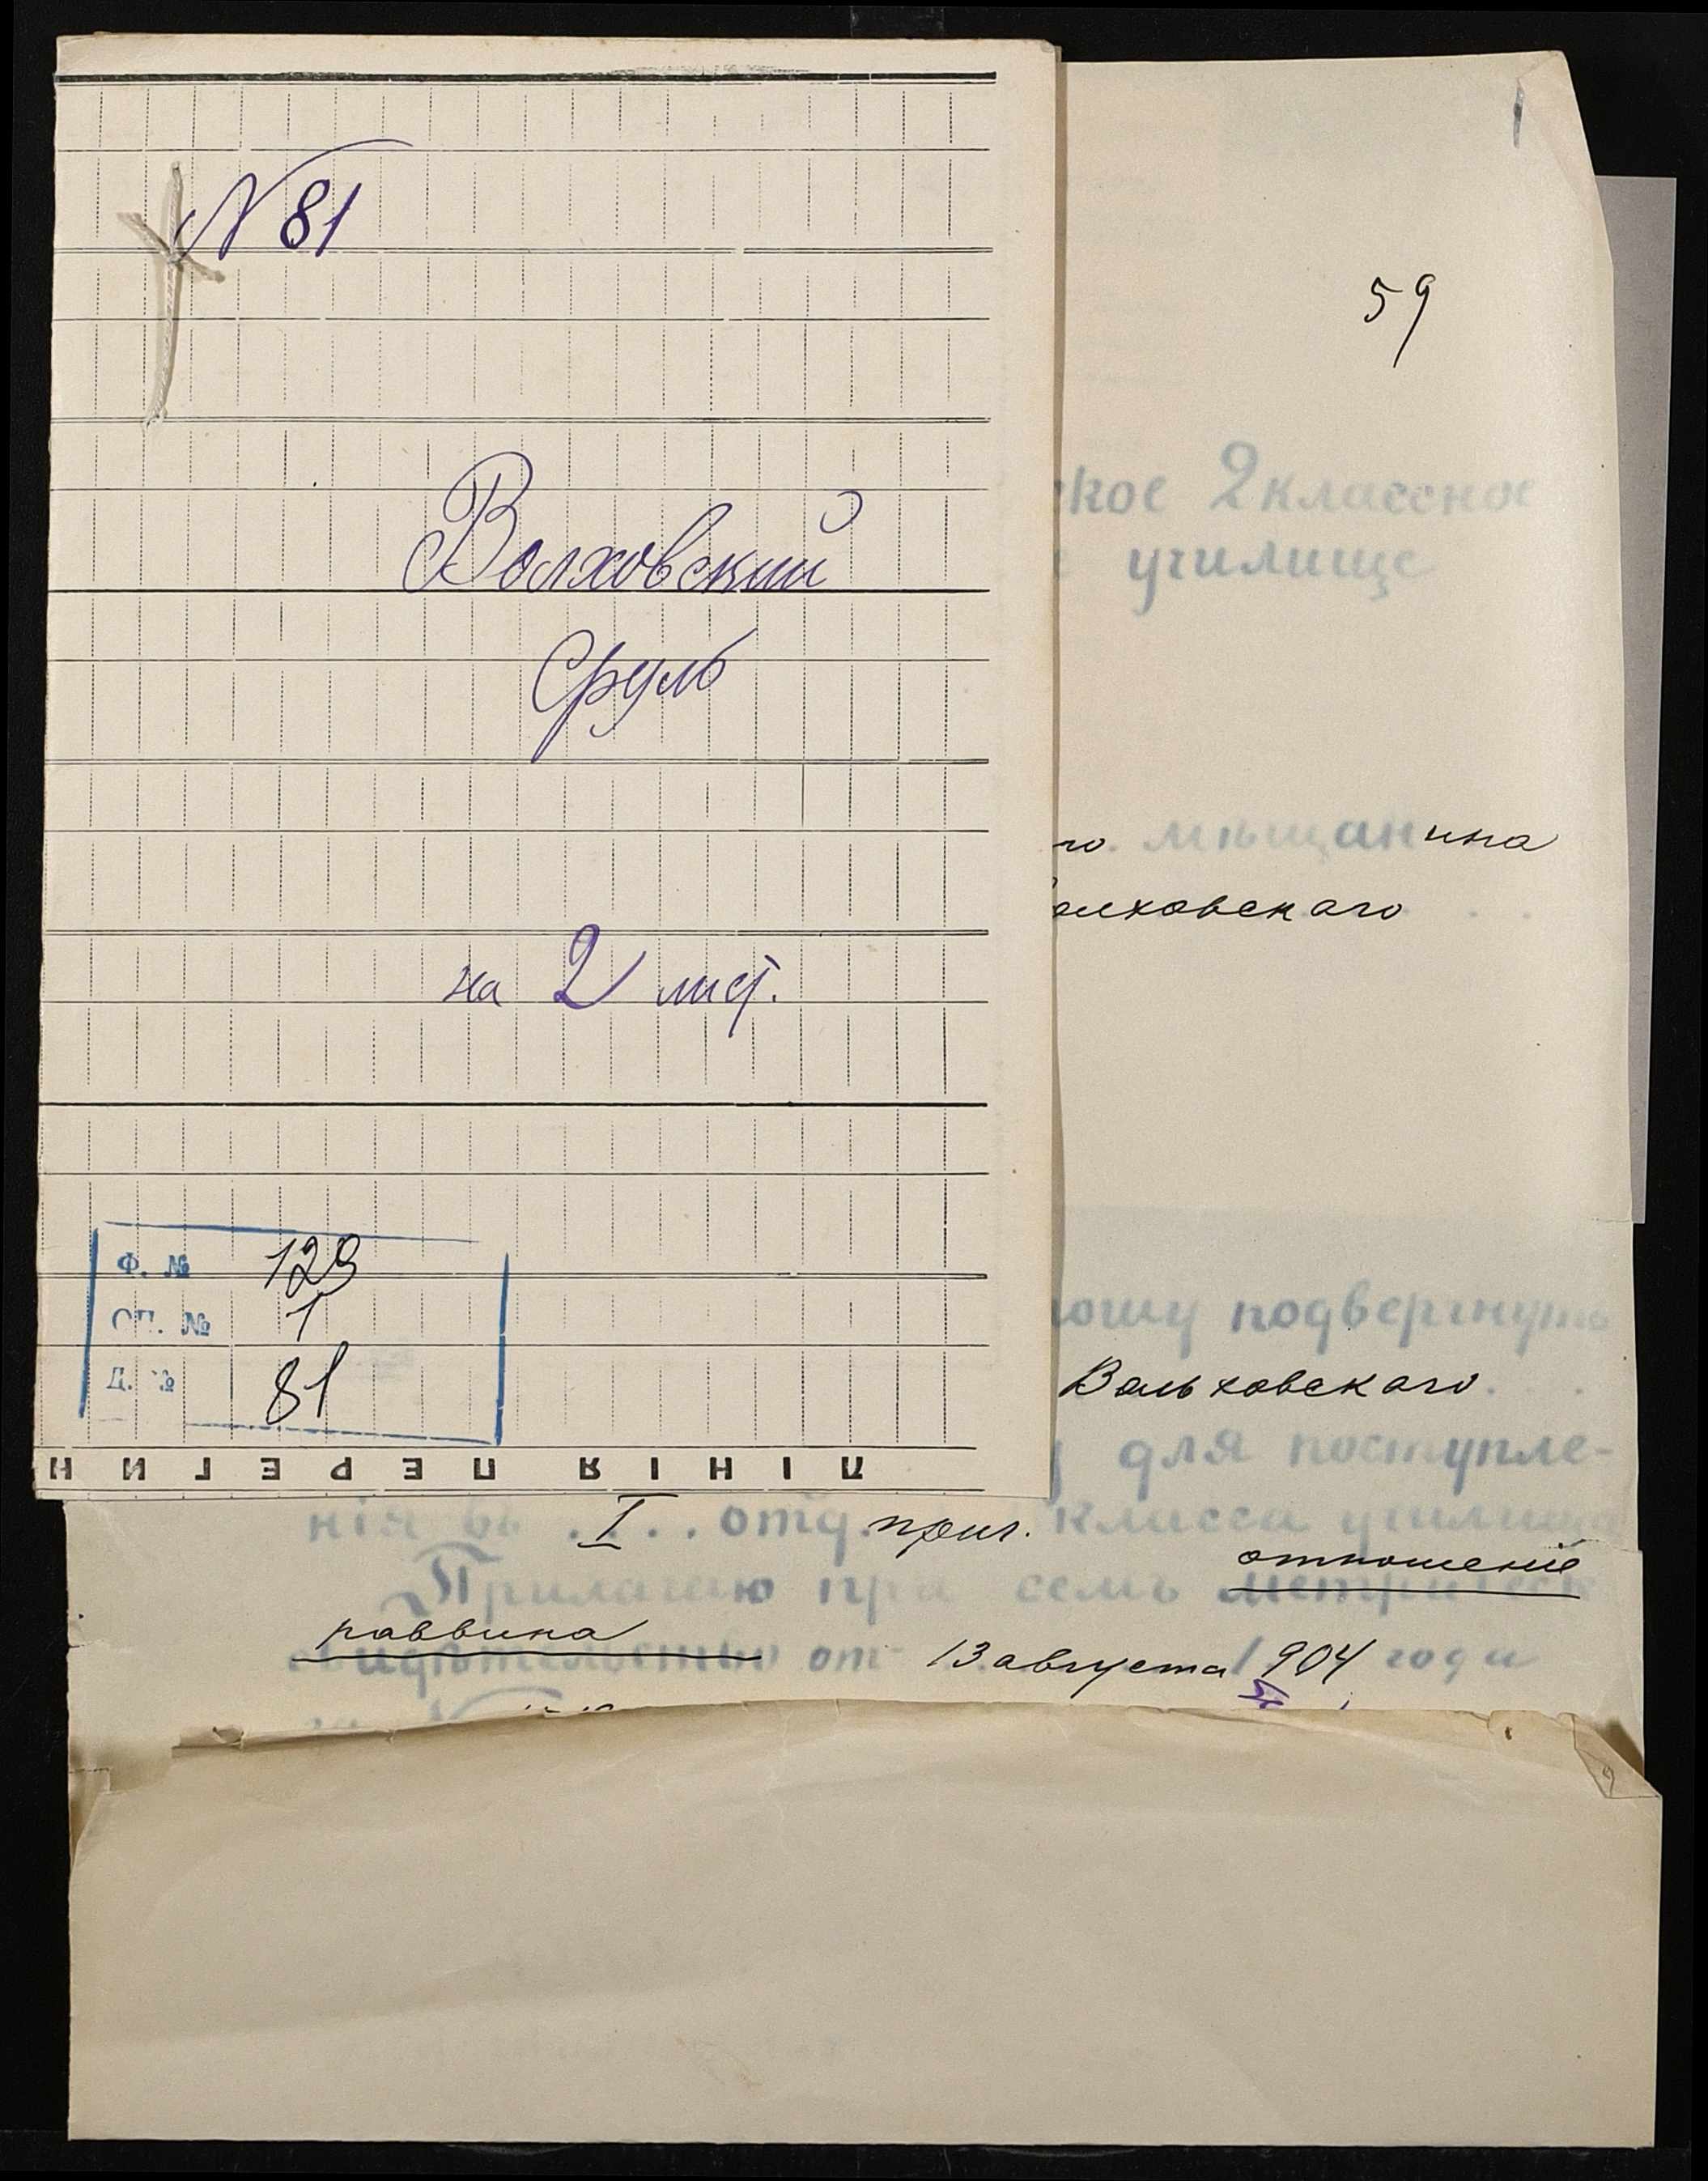 № 81
Волховский
Сруль
на 2 лист.
Ф. № 129
ОП. № 1
Д. № 81
ЛІНІЯ ПЕРЕГИН
59
ское 2 классное
училище
го мѣщанина
олховскаго
рошу подвергнуть
Вольховскаго
для поступле-
нія въ I отд. приг. класса училища
отношеніе
Прилагаю при семъ метрическ
раввина
свидѣтельство от 13 августа 1904 года